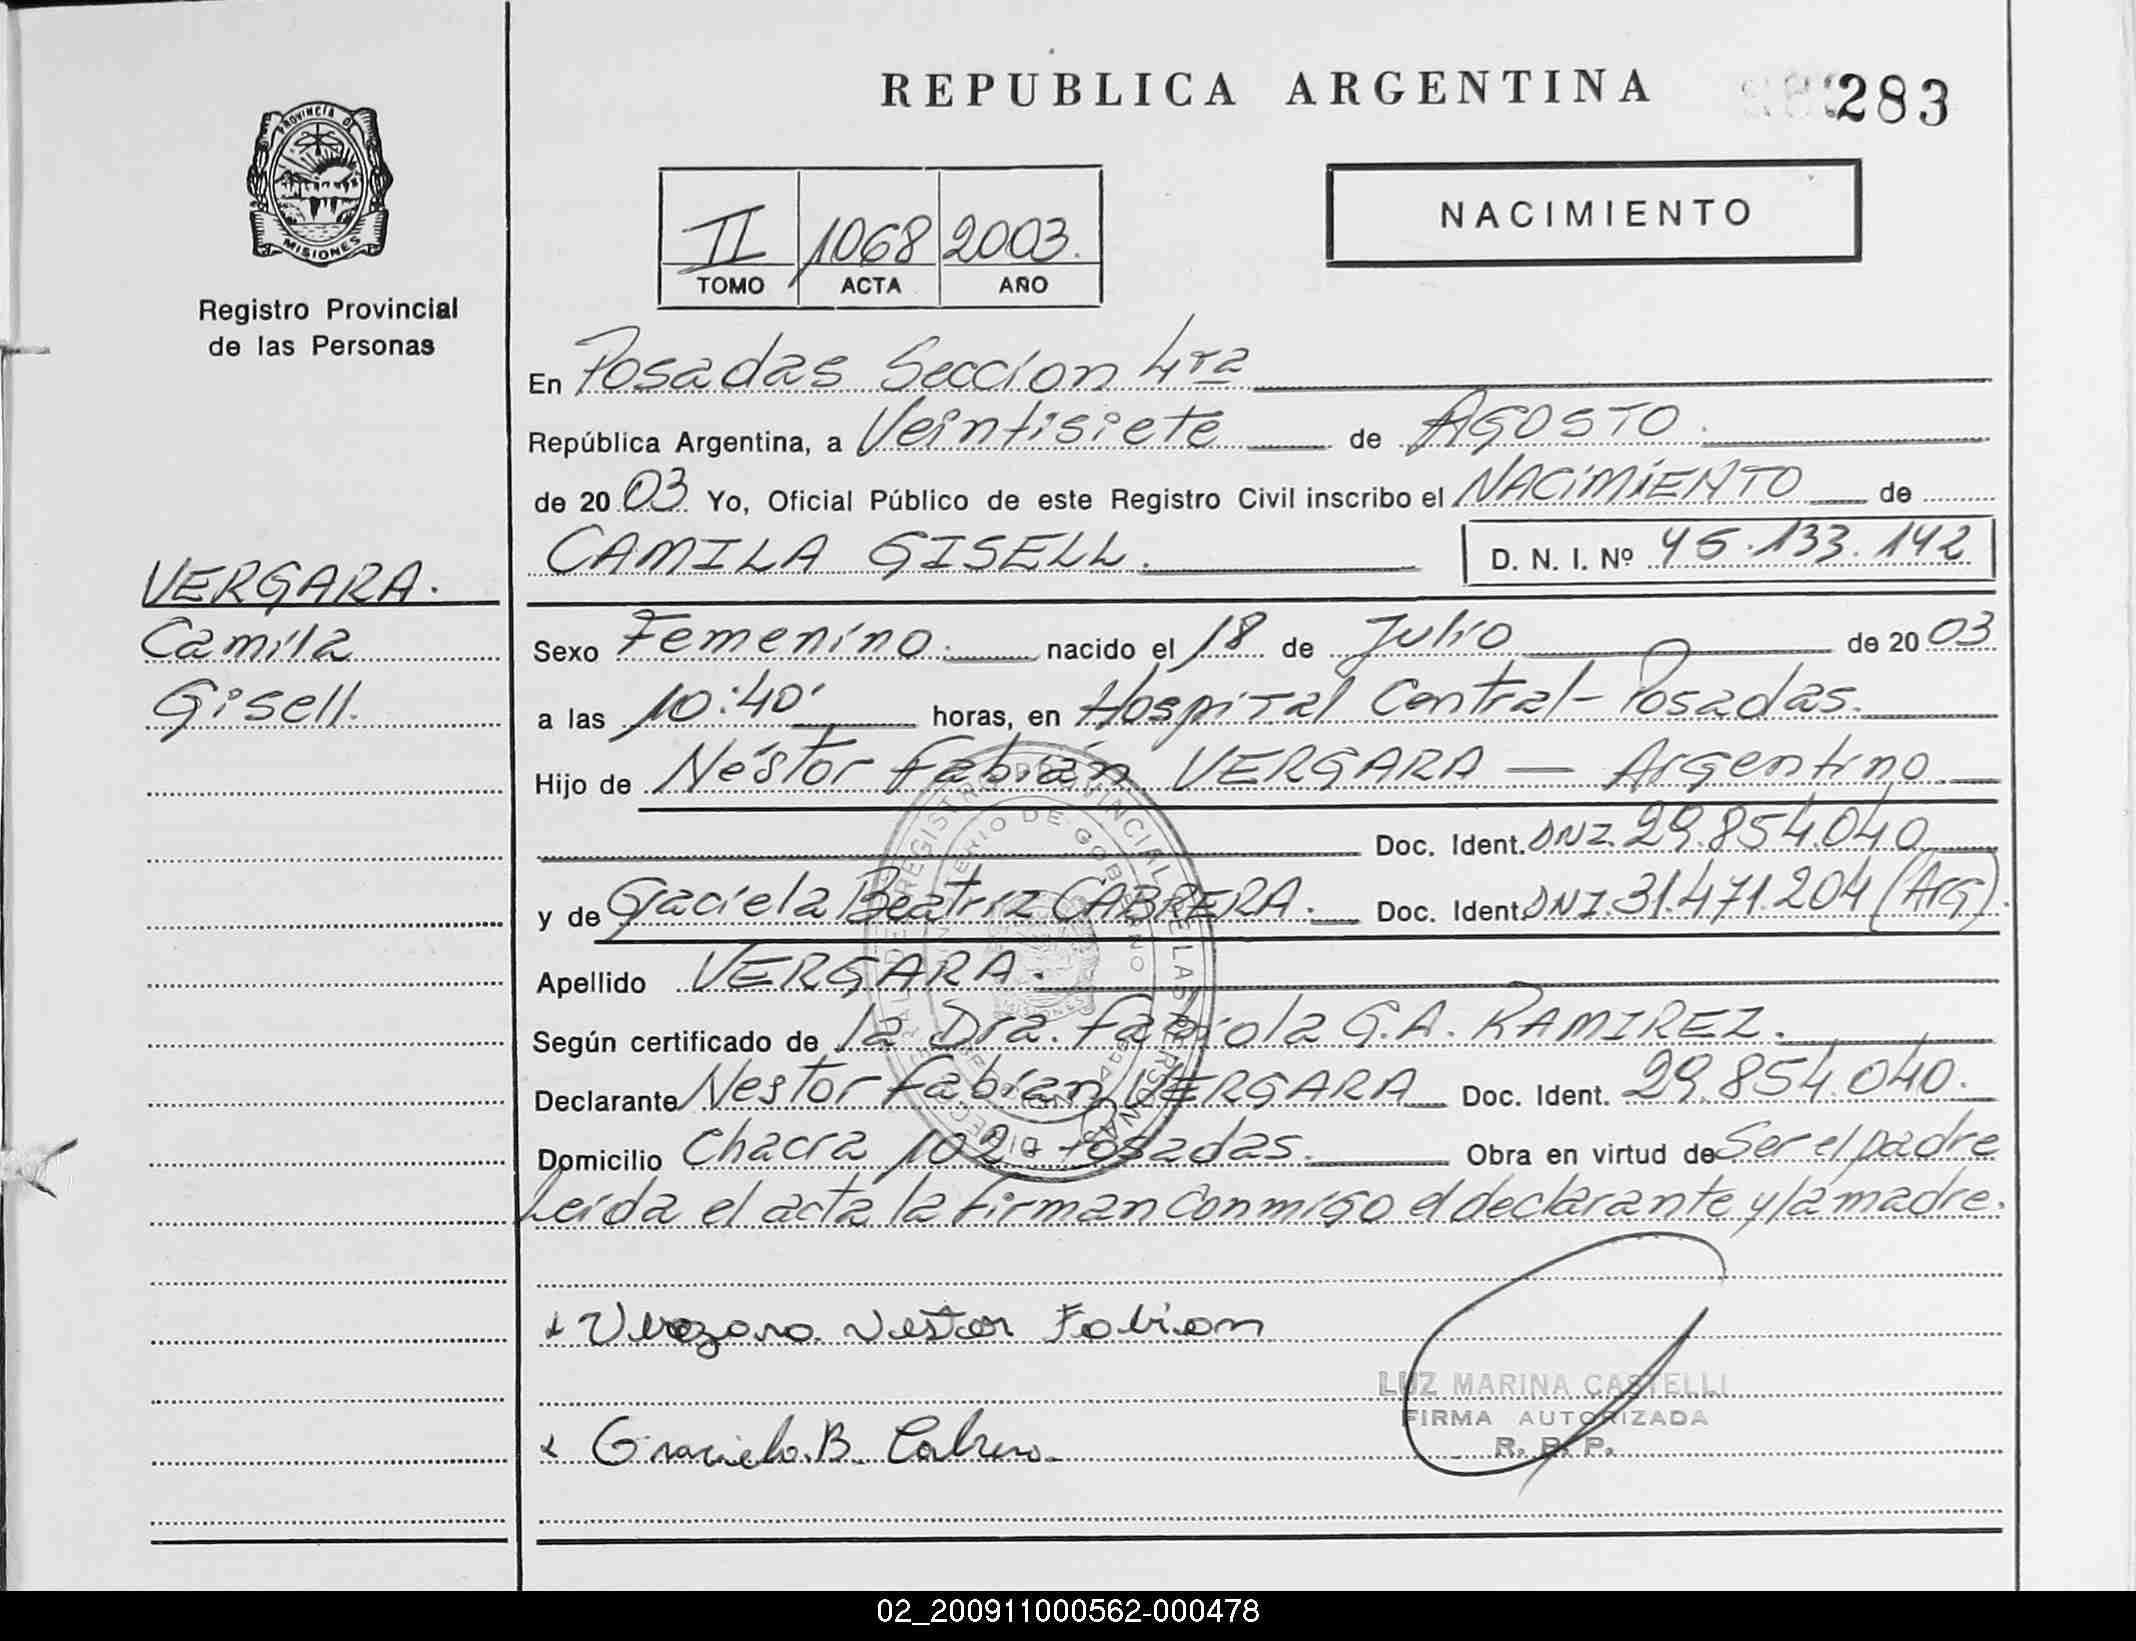 REPUBLICA ARGENTINA
283
PROVINCIA DE
MISIONES
Registro Provincial
de las Personas
II 1068 2003.
TOMO ACTA AÑO
NACIMIENTO
En Posadas Seccion 4ta
República Argentina, a Veintisiete de AGOSTO.
de 2003 Yo, Oficial Público de este Registro Civil inscribo el NACIMIENTO de
CAMILA GISELL. D. N. I. Nº 45.133.142
VERGARA.
Camila
Gisell.
Sexo Femenino. nacido el 18 de Julio de 2003
a las 10:40' horas, en Hospital Central - Posadas.
Hijo de Néstor Fabián VERGARA — Argentino.
Doc. Ident. DNI. 29.854.040
y de Graciela Beatriz CABRERA. Doc. Ident. DNI. 31.471.204 (ARG).
Apellido VERGARA.
Según certificado de la Dra. Fabiola G.A. RAMIREZ.
Declarante Nestor Fabian VERGARA Doc. Ident. 29.854.040.
Domicilio Chacra 102 - Posadas. Obra en virtud de Ser el padre
Leída el acta la firman conmigo el declarante y la madre.
Vergara Nestor Fabian
LUZ MARINA CASTELLI
FIRMA AUTORIZADA
R. P. P.
Graciela. B. Cabrera.
02_200911000562-000478